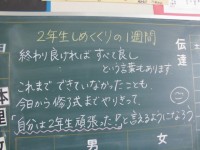 2年生しめくくりの1週間
終わり良ければすべて良し
という言葉もあります
これまでできていなかったことも、
今日から修了式までやりきって、
「自分は2年生頑張った!」と言えるようになろう
伝達
男
女